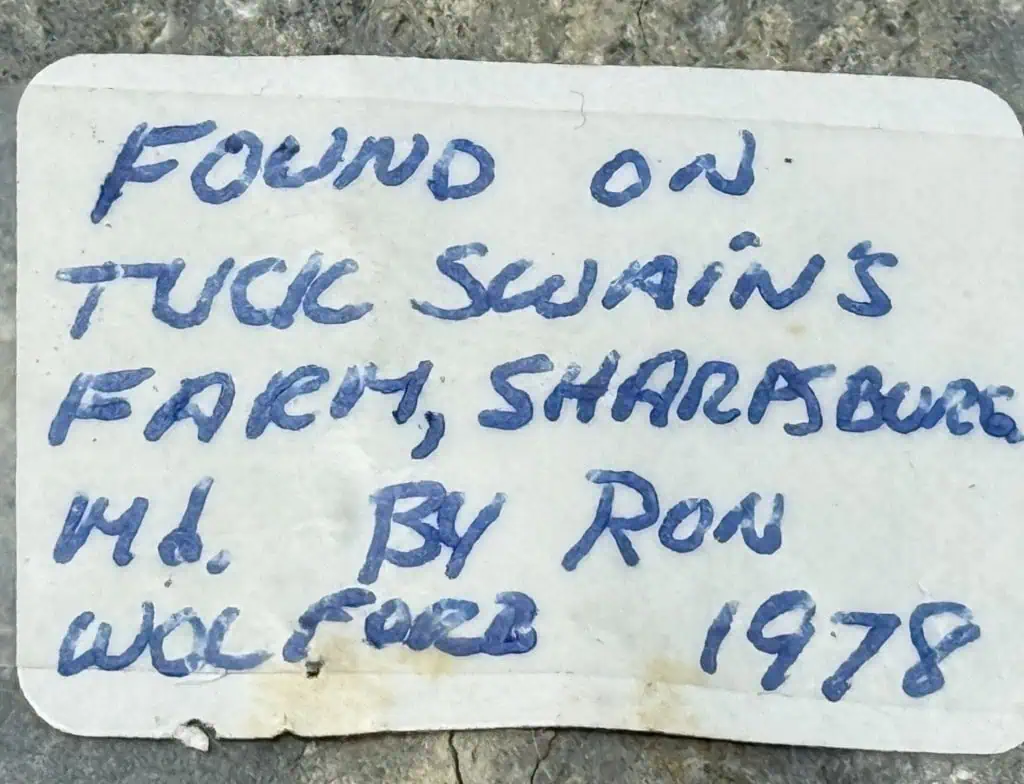 FOUND ON
TUCK SWAiN'S
FARM, SHARPSBURG
Md. BY RON
WOLFORD 1978